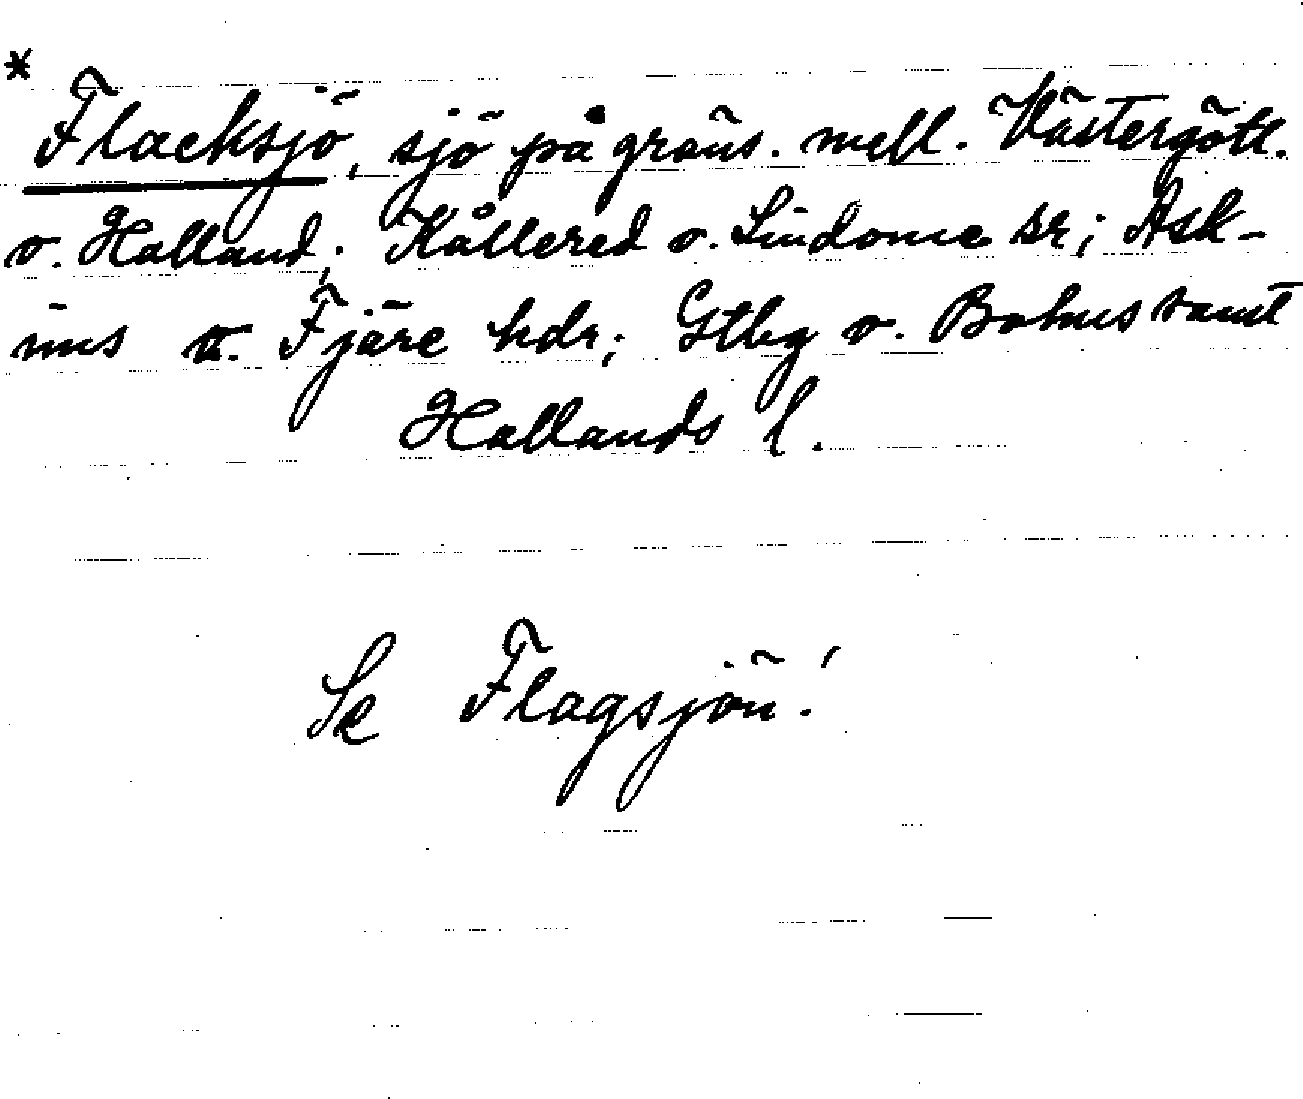 * Flacksjö, sjö på gräns. mell. Västergötl.
o. Halland; Kållered o. Lindome sr; Ask-
ims o. Fjäre hdr; Gtbg o. Bohus samt
Hallands l.
Se Flagsjön!